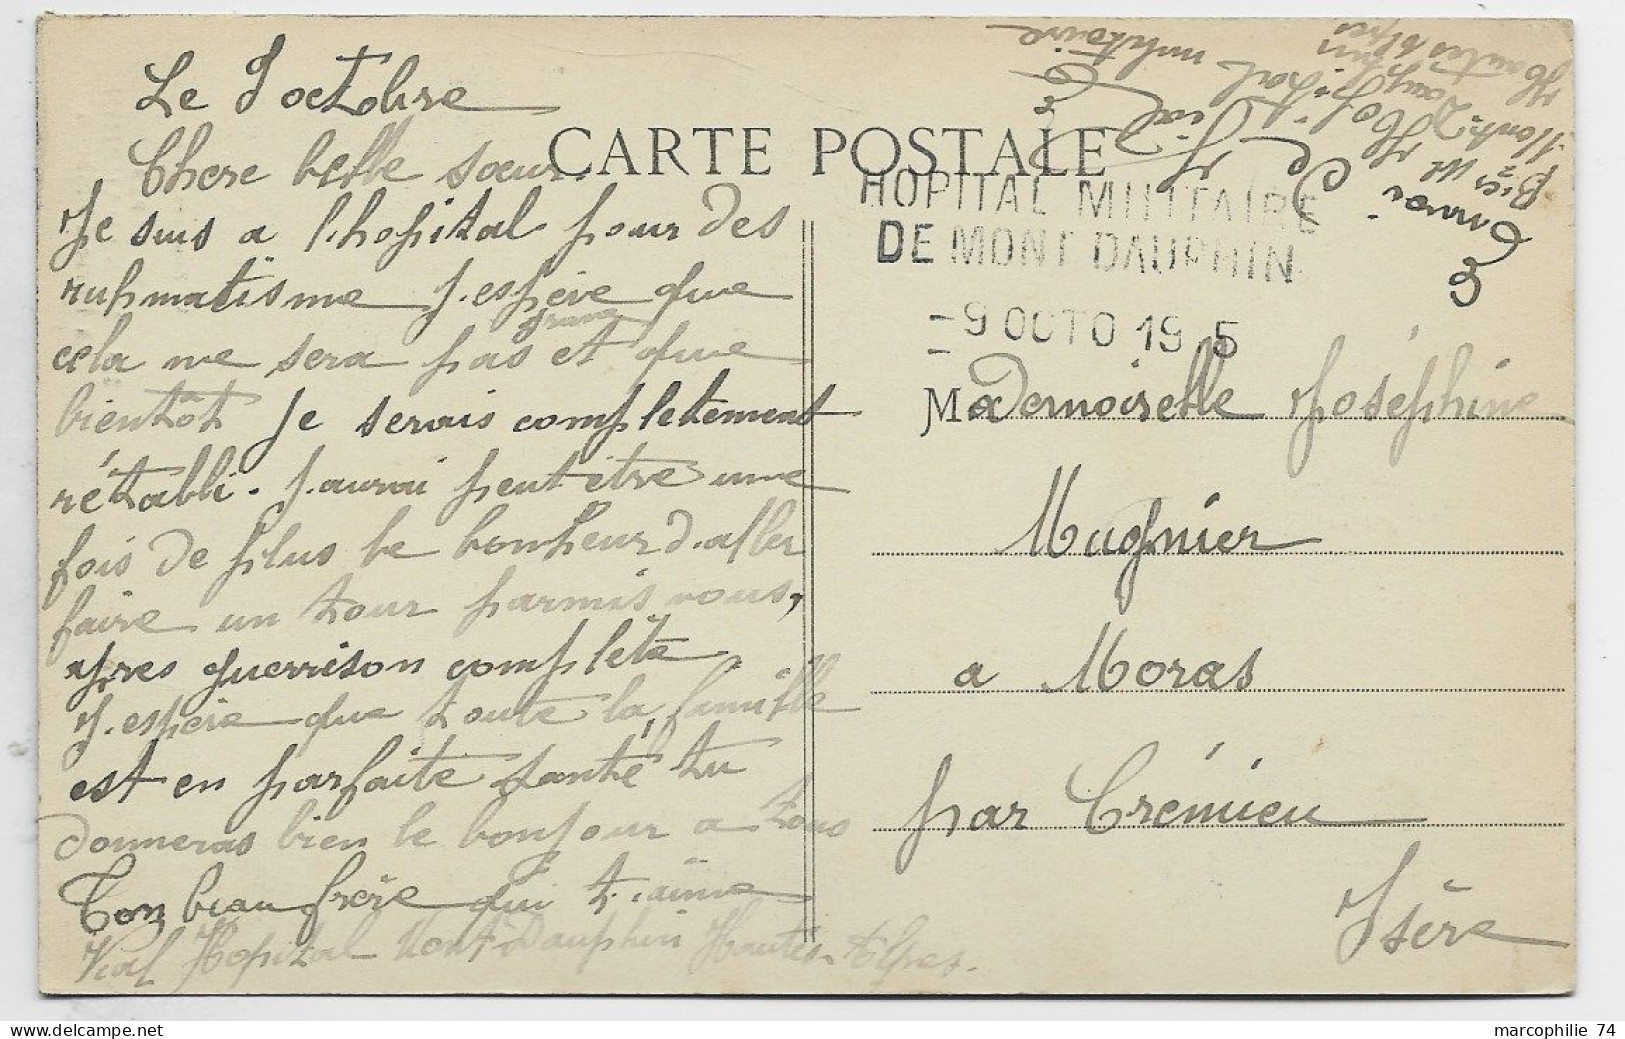 Le 9 octobre
Chere belle sœur.
Je suis a l.hopital pour des
ruhmatisme j.espère que
cela ne sera pas grave et que
bientôt je serais completement
rétabli. j.aurai peut etre une
fois de plus le bonheur d.aller
faire un tour parmis vous,
apres guerrison complète
J.espère que toute la famille
est en parfaite santé tu
donneras bien le bonjour a tous
Ton beau frère qui t.aime
Vial Hopital Mont-Dauphin Hautes-Alpes.
CARTE POSTALE
HOPITAL MILITAIRE
DE MONT DAUPHIN
-9 OCTO 19 5
Envoi de
Vial
Hopital militaire
Mont-Dauphin
Hautes Alpes
Mademoiselle Joséphine
Mugnier
a Moras
par Crémieu
Isère
marcophilie 74